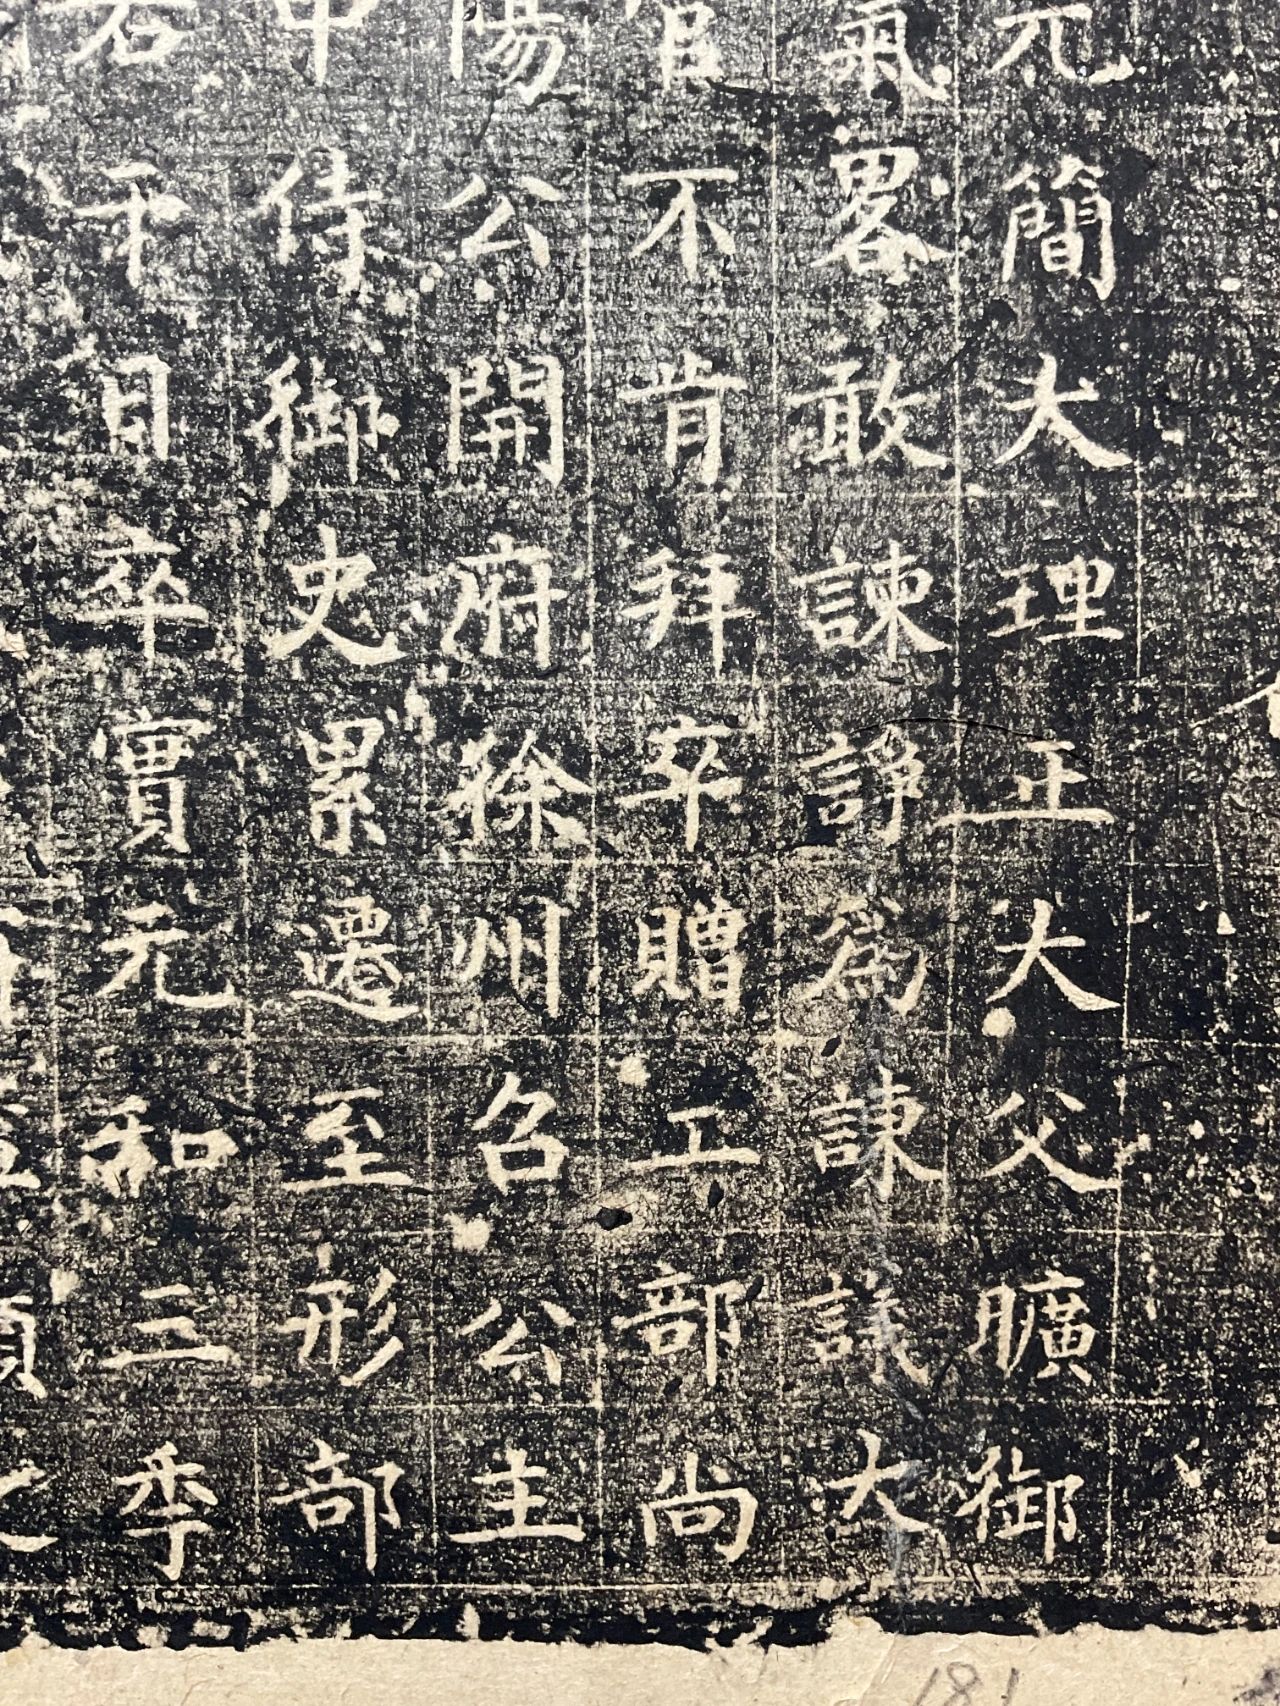 元簡大理正大父曠御
氣畧敢諫諍爲諫議大
官不肯拜卒贈工部尚
陽公開府徐州召公主
中侍御史累遷至形部
若干日卒實元和三季
181